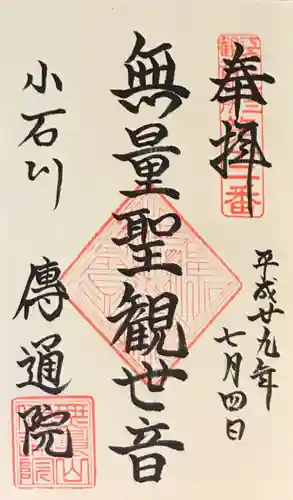 奉拝
平成廿九年
七月四日
無量聖観世音
小石川
傳通院